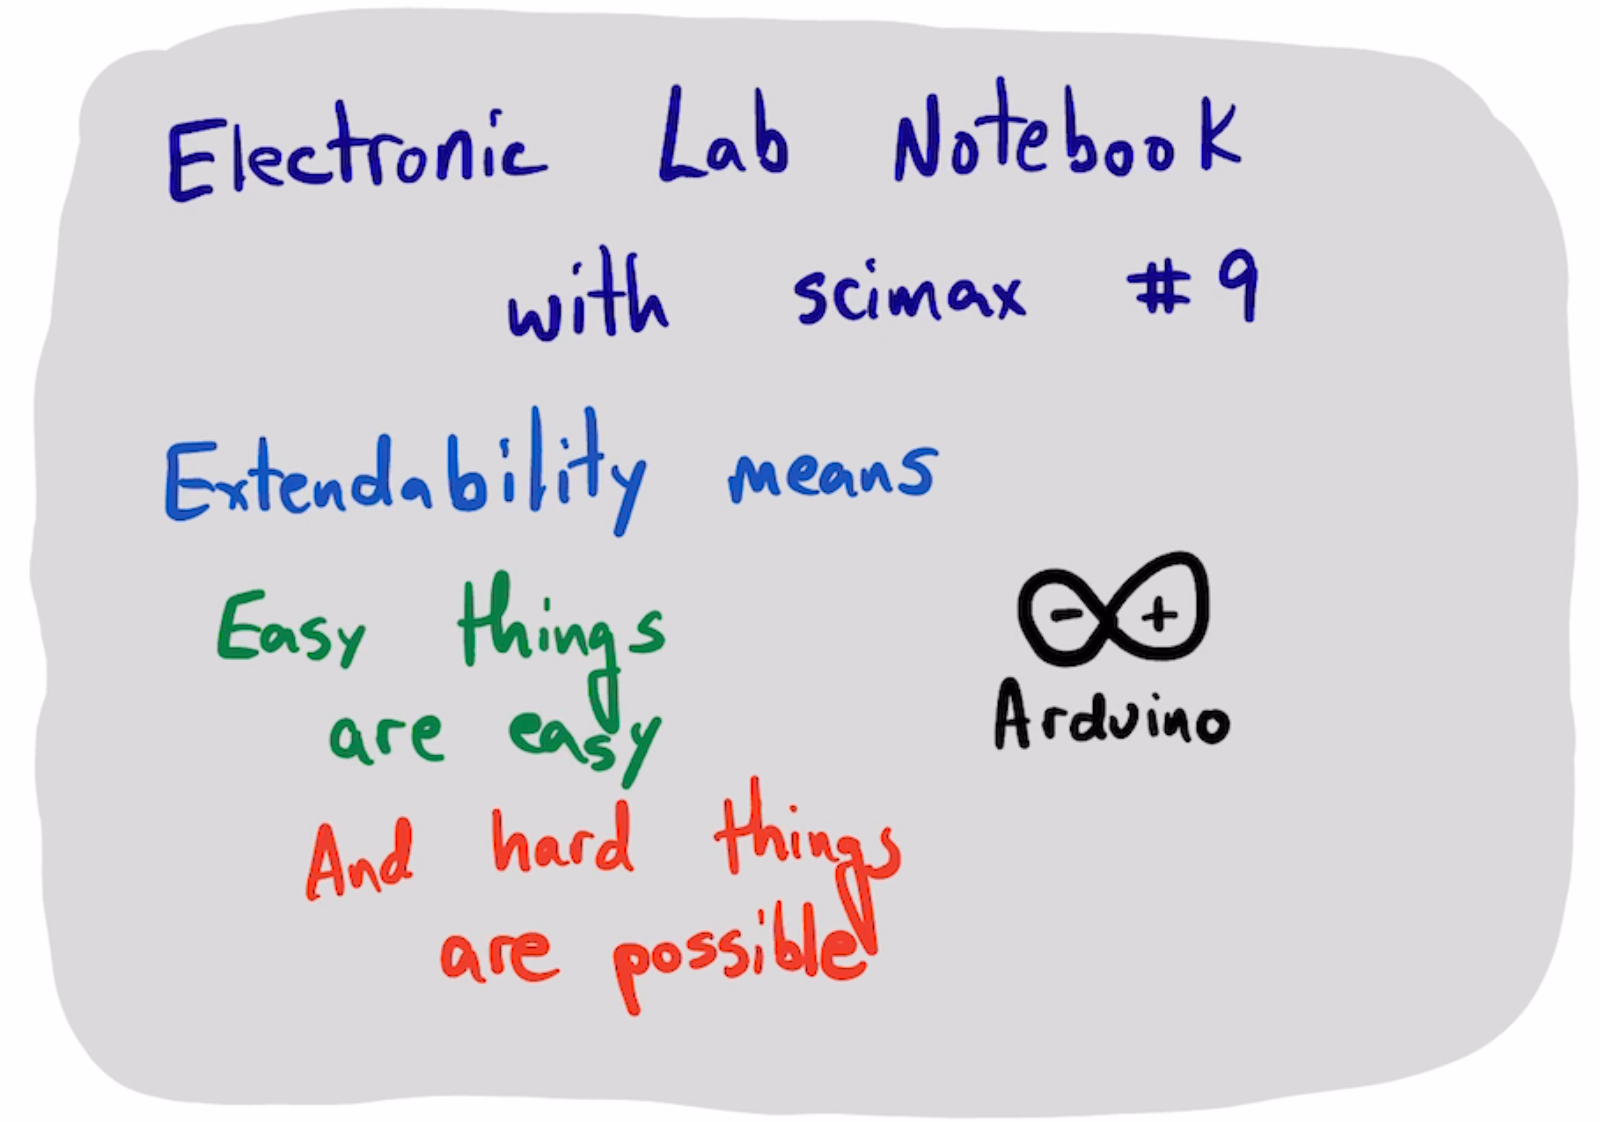 Electronic Lab Notebook
with scimax #9
Extendability means
Easy things
are easy
- +
Arduino
And hard things
are possible